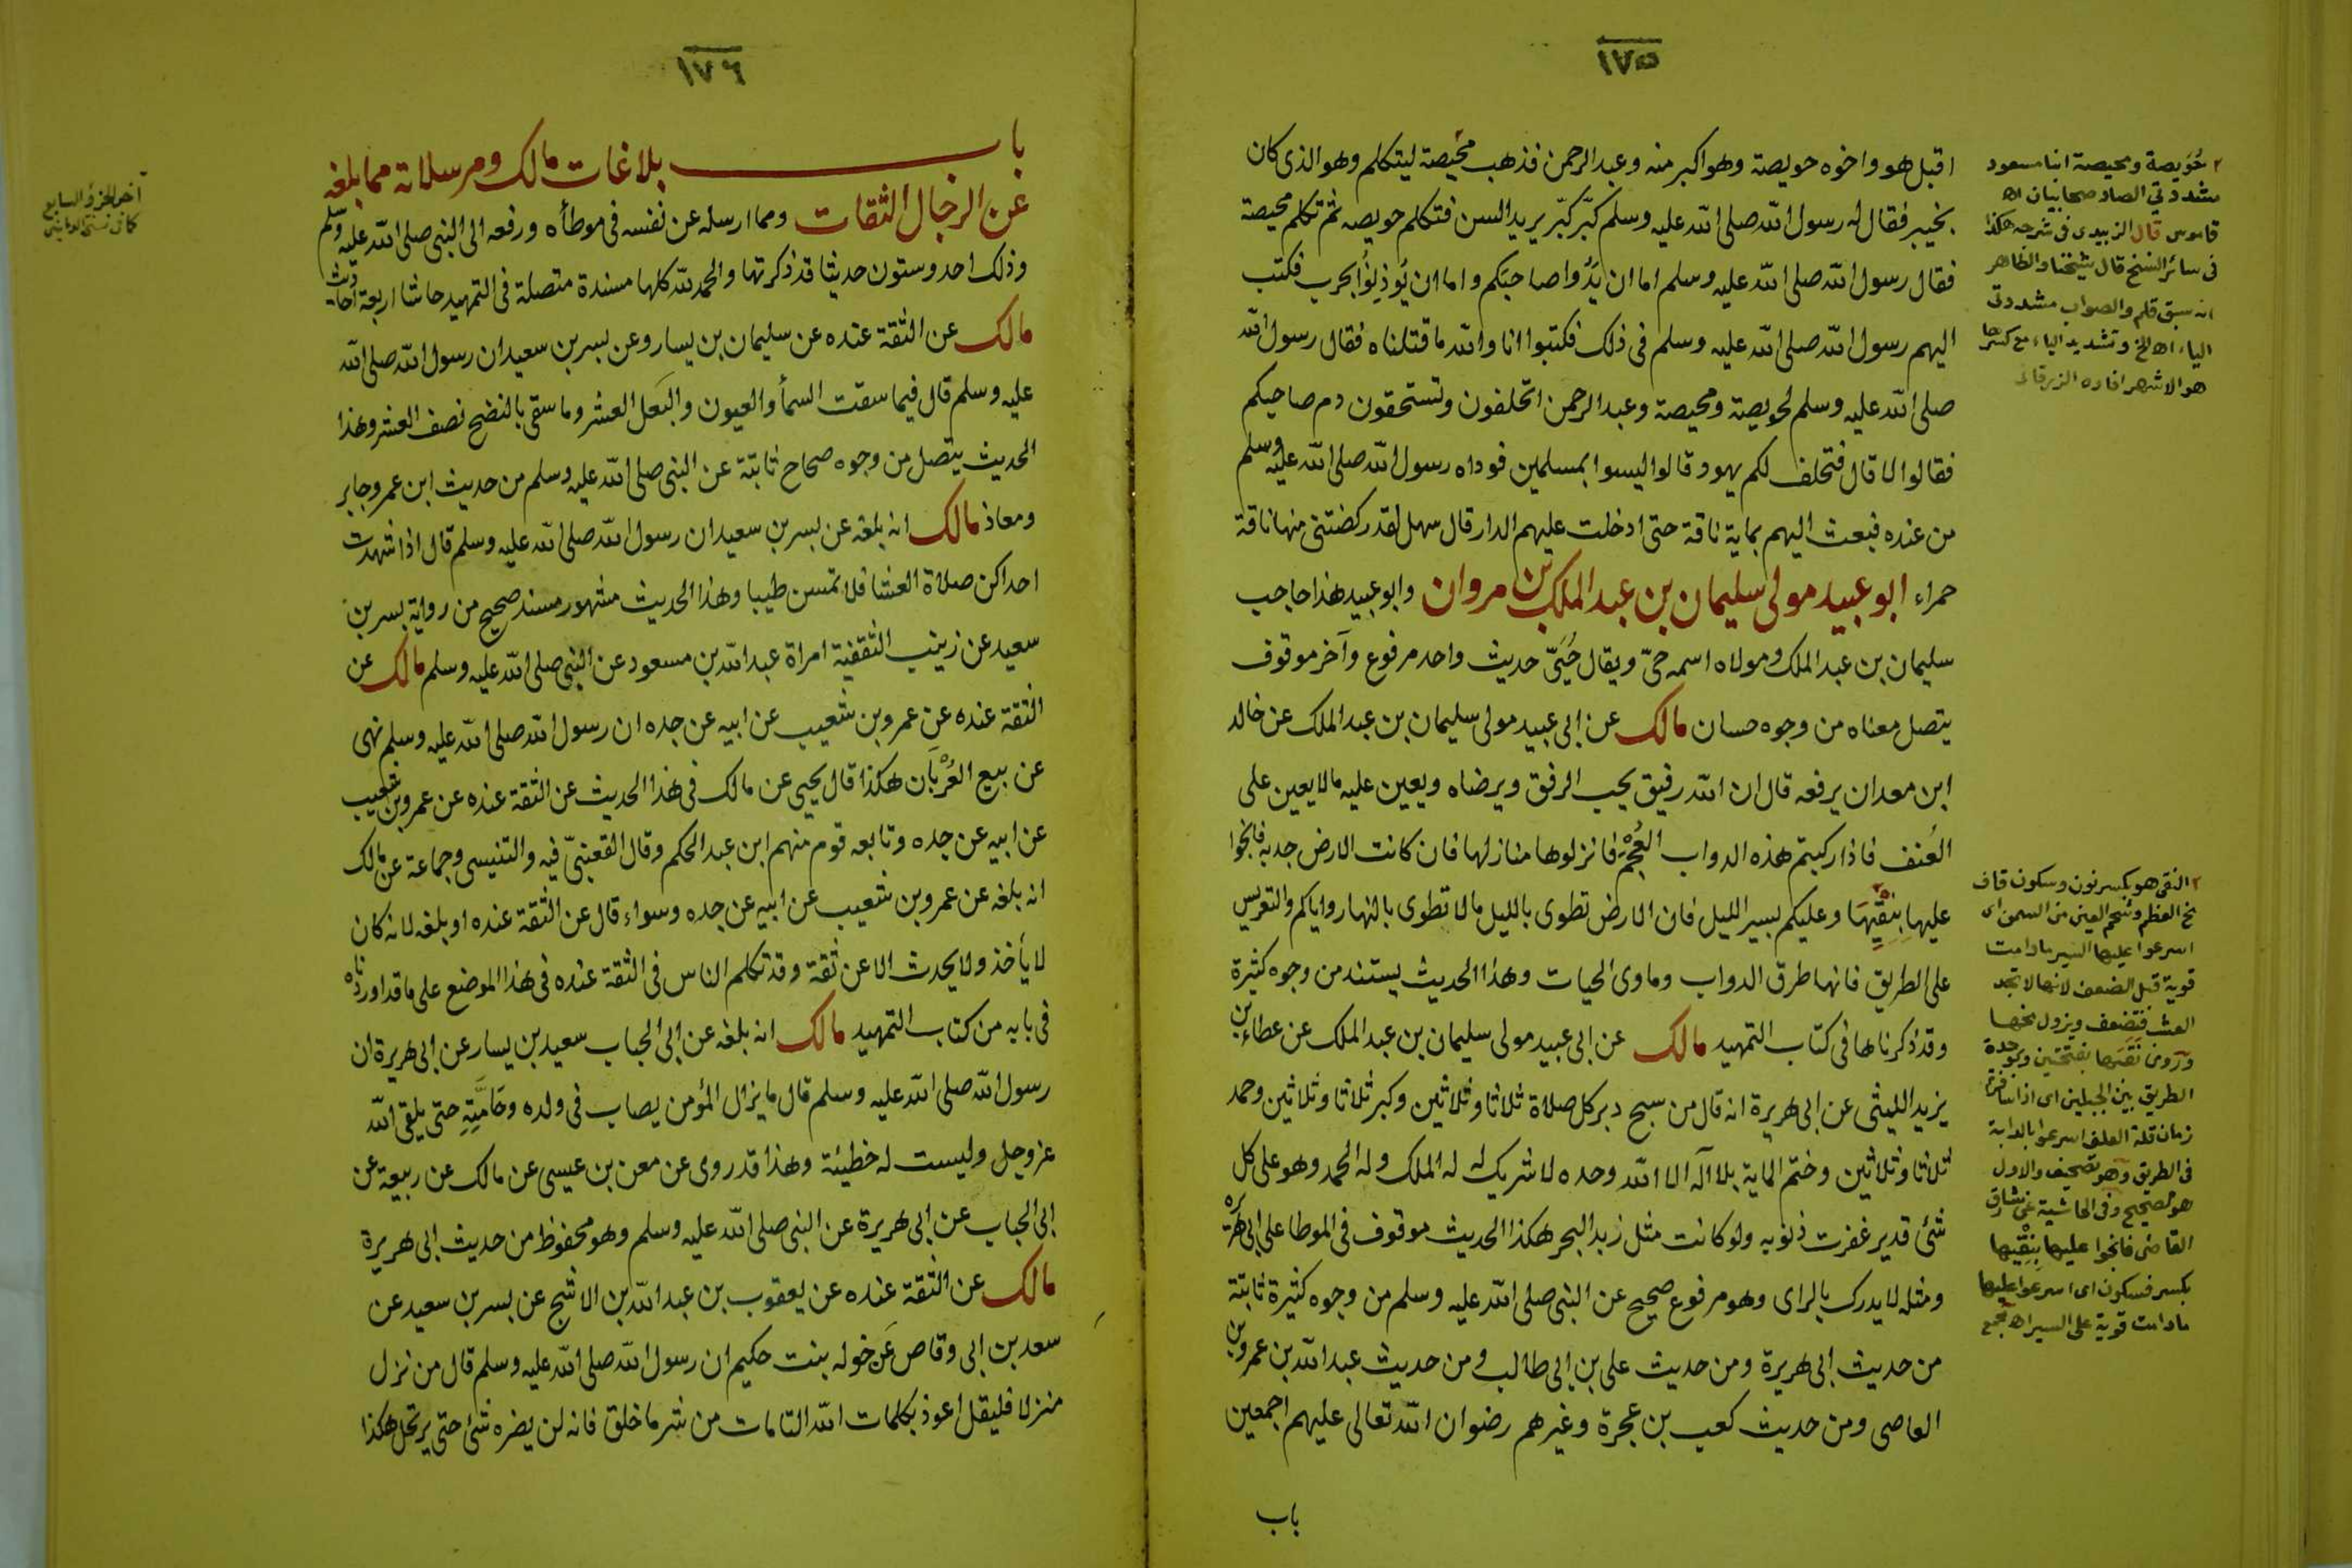 ١٧٥
اقبل هو واخوه حويصة وهو اكبر منه وعبد الرحمن فذهب محيصة ليتكلم وهو الذى كان
بخيبر فقال له رسول الله صلى الله عليه وسلم كبّر كبّر يريد السن فتكلم حويصه ثم تكلم محيصة
فقال رسول الله صلى الله عليه وسلم اما ان يَدُوا صاحبَكم واما ان يُوذِنُوْا بحرب فكتب
اليهم رسول الله صلى الله عليه وسلم فى ذلك فكتبوا انا والله ما قتلناه فقال رسول الله
صلى الله عليه وسلم لحويصة ومحيصة وعبد الرحمن اتحلفون وتستحقون دم صاحبكم
فقالوا لا قال فتحلف لكم يهود قالوا ليسوا بمسلمين فوداه رسول الله صلى الله عليه وسلم
من عنده فبعث اليهم بماية ناقة حتى ادخلت عليهم الدار قال سهل لقد ركضتنى منها ناقة
حمراء ابو عبيد مولى سليمان بن عبد الملك بن مروان وابو عبيد هذا حاجب
سليمان بن عبد الملك ومولاه اسمه حىّ ويقال حُيَىّ حديث واحد مرفوع وآخر موقوف
يتصل معناه من وجوه حسان مالك عن ابى عبيد مولى سليمان بن عبد الملك عن خالد
ابن معدان يرفعه قال ان الله رفيق يحب الرفق ويرضاه ويعين عليه ما لا يعين على
العُنف فاذا ركبتم هذه الدواب العُجْمَ فانزلوها منازلها فان كانت الارض جدبة فانجوا
عليها بِنِقْيِهَا وعليكم بسير الليل فان الارض تطوى بالليل ما لا تطوى بالنهار واياكم والتعريس
على الطريق فانها طرق الدواب وماوى الحيات وهذا الحديث يستند من وجوه كثيرة
وقد ذكرناها فى كتاب التمهيد مالك عن ابى عبيد مولى سليمان بن عبد الملك عن عطاء بن
يزيد الليثى عن ابى هريرة انه قال من سبح دبر كل صلاة ثلاثا وثلاثين وكبر ثلاثا وثلاثين وحمد
ثلاثا وثلاثين وختم الماية بلا اله الا الله وحده لا شريك له له الملك وله الحمد وهو على كل
شئ قدير غفرت ذنوبه ولو كانت مثل زبد البحر هكذا الحديث موقوف فى الموطا على ابى هريرة
ومثله لا يدرك بالراى وهو مرفوع صحيح عن النبى صلى الله عليه وسلم من وجوه كثيرة ثابتة
من حديث ابى هريرة ومن حديث على بن ابى طالب ومن حديث عبد الله بن عمرو بن
العاصى ومن حديث كعب بن عجرة وغيرهم رضوان الله تعالى عليهم اجمعين
باب
٢ حُوَيصة ومحيصة ابنا مسعود
مشددتي الصاد صحابيان اه
قاموس قال الزبيدى فى شرحه هكذا
فى سائر النسخ قال شيخنا والظاهر
انه سبق قلم والصواب مشددتى
الياء اه الخ وتشديد الياء مع كسرها
هو الاشهر افاده الزرقانى
٢ النقى هو بكسر نون وسكون قاف
مخ العظم وشحم العين من السمن اى
اسرعوا عليها السير ما دامت
قوية قبل الضعف لانها لا تجد
العشب فتضعف ويزول مخها
وروى نَقَبَها بفتحتين وبموحدة
الطريق بين الجبلين اى اذا سافرتم
زمان قلة العلف اسرعوا بالدابة
فى الطريق وهو تصحيف والاول
هو الصحيح وفى الحاشية عن مشارق
القاضى فانجوا عليها بِنِقْيِها
بكسر فسكون اى اسرعوا عليها
ما دامت قوية على السير اه مجمع
١٧٦
باب بلاغات مالك ومرسلاته مما بلغه
عن الرجال الثقات ومما ارسله عن نفسه فى موطأه ورفعه الى النبى صلى الله عليه وسلم
وذلك احد وستون حديثا قد ذكرتها والحمد لله كلها مسندة متصلة فى التمهيد حاشا اربعة احاديث
مالك عن الثقة عنده عن سليمان بن يسار وعن بسر بن سعيد ان رسول الله صلى الله
عليه وسلم قال فيما سقت السمأ والعيون والبَعل العشر وما سقى بالنضح نصف العشر وهذا
الحديث يتصل من وجوه صحاح ثابتة عن النبى صلى الله عليه وسلم من حديث ابن عمر وجابر
ومعاذ مالك انه بلغه عن بسر بن سعيد ان رسول الله صلى الله عليه وسلم قال اذا شهدت
احداكن صلاة العشا فلا تمسن طيبا وهذا الحديث مشهور مسند صحيح من رواية بسر بن
سعيد عن زينب الثقفية امراة عبد الله بن مسعود عن النبى صلى الله عليه وسلم مالك عن
الثقة عنده عن عمرو بن شعيب عن ابيه عن جده ان رسول الله صلى الله عليه وسلم نهى
عن بيع العُرْبَان هكذا قال يحيى عن مالك فى هذا الحديث عن الثقة عنده عن عمرو بن شعيب
عن ابيه عن جده وتابعه قوم منهم ابن عبد الحكم وقال القعنبىّ فيه والتنيسى وجماعة عن مالك
انه بلغه عن عمرو بن شعيب عن ابيه عن جده وسواء قال عن الثقة عنده او بلغه لانه كان
لا يأخذ ولا يحدث الا عن ثقة وقد تكلم الناس فى الثقة عنده فى هذا الموضع على ما قد اوردناه
فى بابه من كتاب التمهيد مالك انه بلغه عن ابى الحباب سعيد بن يسار عن ابى هريرة ان
رسول الله صلى الله عليه وسلم قال ما يزال المؤمن يصاب فى ولده وحَامَّتِهِ حتى يلقى الله
عز وجل وليست له خطيئة وهذا قد روى عن معن بن عيسى عن مالك عن ربيعة عن
ابى الحباب عن ابى هريرة عن النبى صلى الله عليه وسلم وهو محفوظ من حديث ابى هريرة
مالك عن الثقة عنده عن يعقوب بن عبد الله بن الاشج عن بسر بن سعيد عن
سعد بن ابى وقاص عَن خوله بنت حكيم ان رسول الله صلى الله عليه وسلم قال من نزل
منزلا فليقل اعوذ بكلمات الله التامات من شر ما خلق فانه لن يضره شئ حتى يرتحل هكذا
آخر الجزؤ السابع